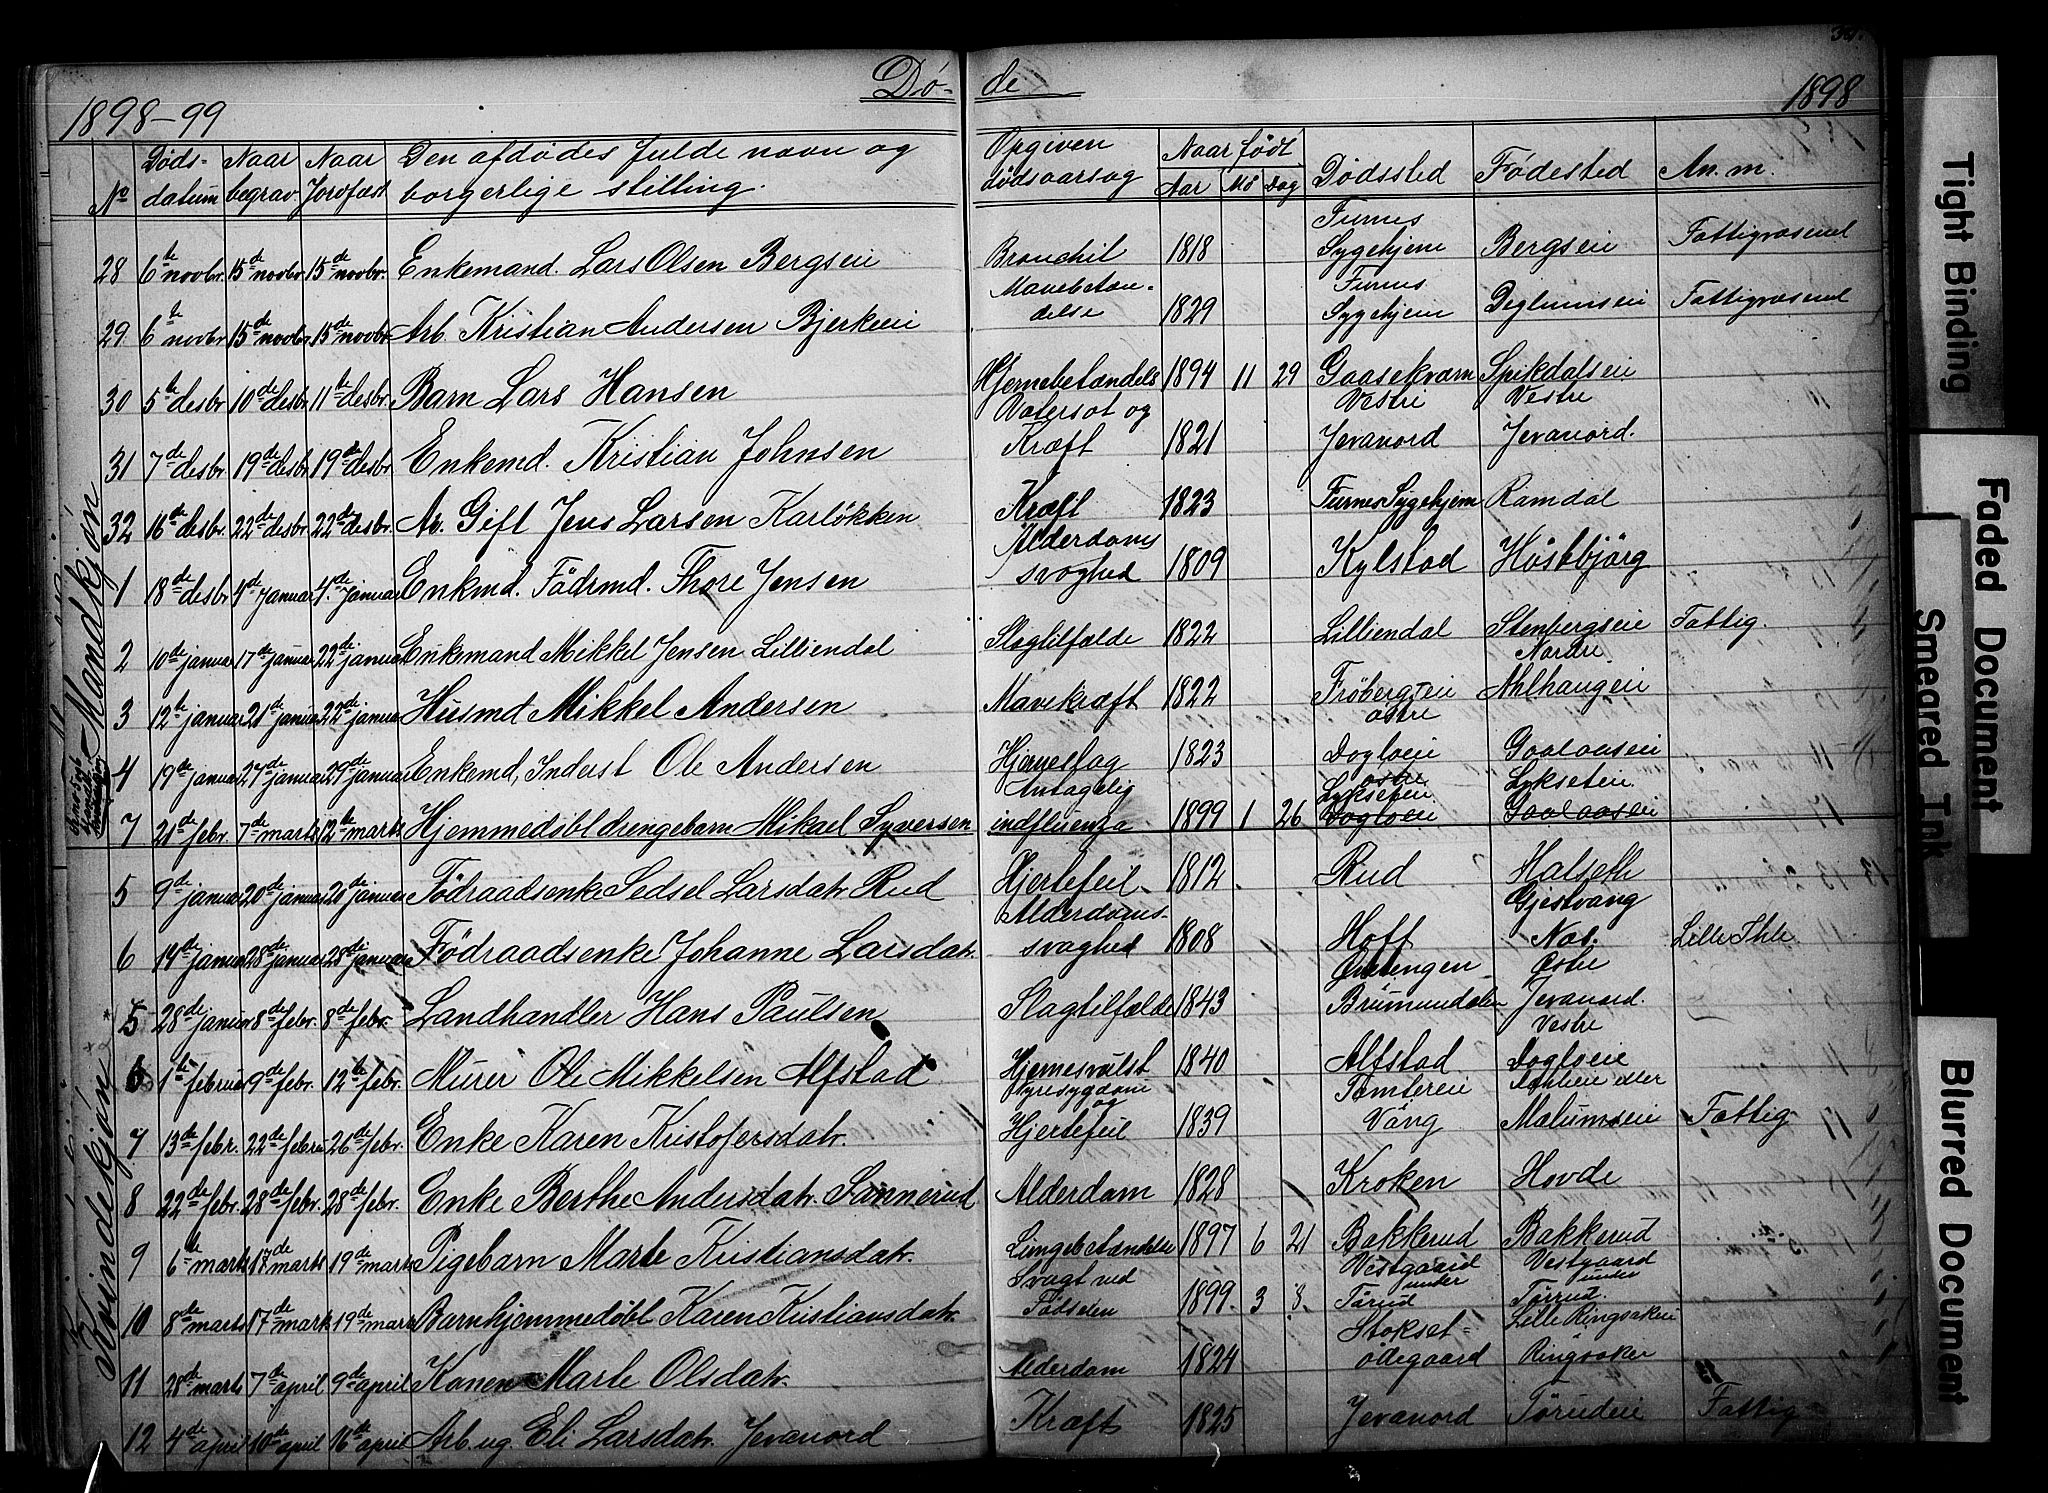 Dø- de
1898-99 1898
No Døds-datum Naar begrav. Naar Jordfæst Den afdødes fulde navn og borgerlige stilling. Opgiven dødsaarsag Naar født Aar Mø Dag Dødssted Fødested An.m.
Mandkjøn
28 6te novbr. 15de novbr. 15de novbr. Enkemand. Lars Olsen Bergseie Bronchit 1818 Furnes Sygehjem Bergseie Fattigvæsenet
29 6te novbr 15de novbr 15de novbr Arb. Kristian Andersen Bjerkeeie Mavebetændelse 1829 Furnes Sygehjem Deglumseie Fattigvæsenet
30 5te desbr. 10de desbr. 11te desbr. Barn Lars Hansen Hjernebetændels 1894 11 29 Gaasekværn Spikdalseie
31 7de desbr. 19de desbr. 19de desbr. Enkemd. Kristian Johnsen Vatersot og Kræft 1821 Vestre Jevanord Vestre Jevanord.
32 16de desbr. 22de desbr. 22de desbr. Av. Gift Jens Larsen Karløkken Kræft 1823 Furnes Sygehjem Ramdal
1 18de desbr 4de januar 4de januar Enkmd. Födrmd. Thore Jensen Alderdoms svaghed 1809 Kylstad Høstbjörg
2 10de januar 17de januar 22de januar Enkemand Mikkel Jensen Lilliendal Slagtilfælde 1822 Lilliendal Stenbergseie Fattig.
3 12te januar 21de januar 22de januar Husmd Mikkel Andersen Mavekræft 1822 Frøbergseie Nordre Ahlhaugeie
4 19te januar 27de januar 29de januar Enkemd, Inderst Ole Andersen Hjerneslag 1823 østre Dogloeie Gaalaaseie
7 21de febr. 7de marts 12te marts. Hjemmedøbt drengebarn Mikael Syversen Antagelig indfluenza 1899 1 26 østre Lykseteie Dogloeie Lykseteie. Gaalaaseie
Kvindekjøn
5 9de januar 20de januar 20de januar Fødraadsenke Sedsel Larsdatr. Rud Hjertefeil 1812 Rud Halseth
6 14de januar 28de januar 28de januar Födraadsenke Johanne Larsdatr. Alderdoms-svaghed 1808 Hoff Gjestvang Næs. Lille Ihle
5 28de januar 8de febr. 8de febr. Landhandler Hans Paulsen Slagtilfælde 1843 Brumunddalen Østre Jevanord.
6 1te februar 9de febr. 12te febr. Murer Ole Mikkelsen Alfstad Hjernesvülst 1840 Alfstad Vestre Dogloeie
7 13de febr. 22de februar 26de febr. Enke Karen Kristofersdatr. Nyresygdom og Hjertefeil 1839 Tomtereie Vang eller Malumseie Fattig
8 22de febr. 28de febr. 28de febr. Enke Berthe Andersdatr. Sannerud Alderdom 1828 Kroken Hovde
9 6te marts 17de marts 19de marts Pigebarn Marte Kristiansdatr. Lungebetændelse 1897 6 21 Bakkerud Bakkerud
10 8de marts 17de mark 19de mark Barn hjemmedøbt Karen Kristiansdatr. Svagt ved Fødselen 1899. 3 8. Vestgaard under Törud Vestgaard under Törrud.
11 28de marts 7de april 9de april Konen Marte Olsdatr. Alderdom 1824 Stokset-ödegaard Lille Ringsakeie Ringsaker
12 4de april 10de april 16de april Arb. ug. Eli Larsdatr. Jevanord Kræft 1825 Jevanord Törudeie Fattig
Tight Binding
Faded Document
Smeared Ink
Blurred Document